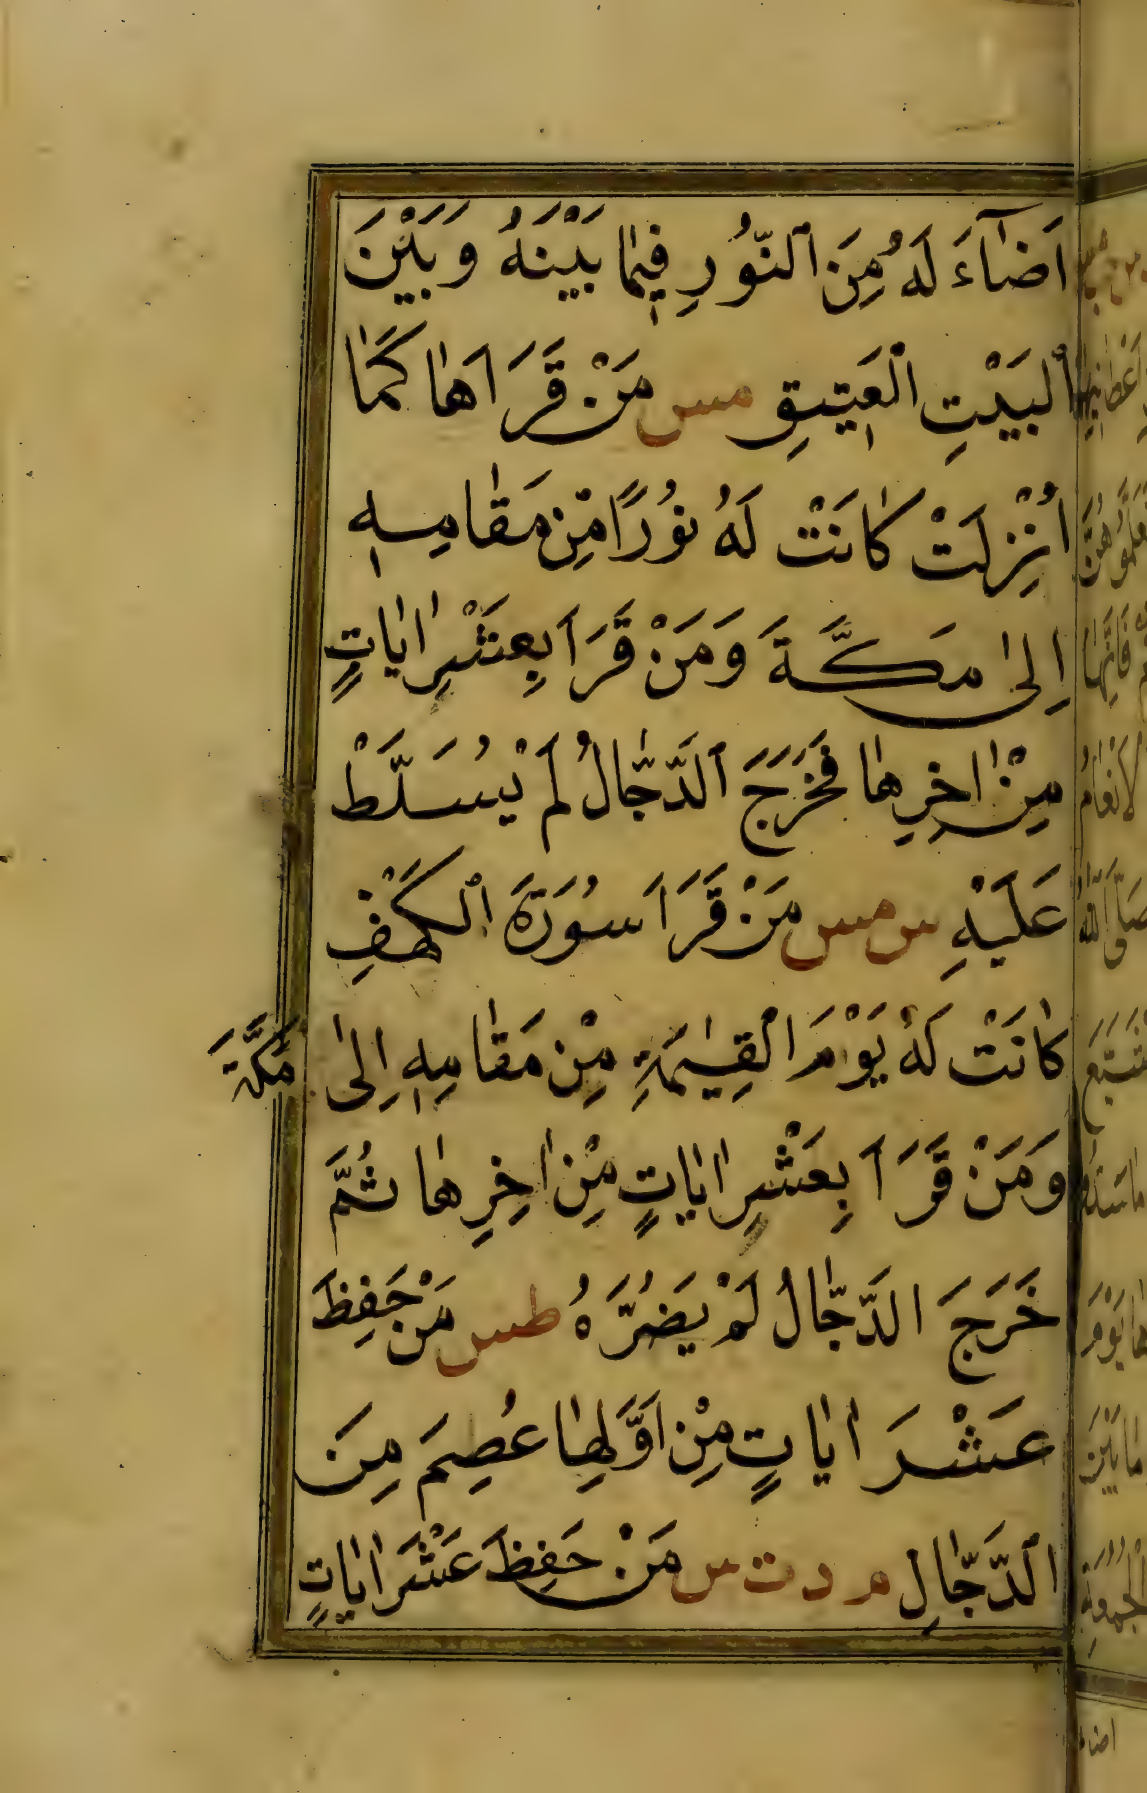 اَضَاۤءَ لَهُ مِنَ النُّورِ فِيمَا بَيْنَهُ وَبَيْنَ
الْبَيْتِ الْعَتِيقِ مس مَنْ قَرَاَهَا كَمَا
اُنْزِلَتْ كَانَتْ لَهُ نُورًا مِنْ مَقَامِهِ
اِلَى مَكَّةَ وَمَنْ قَرَاَ بِعَشْرِ اٰيَاتٍ
مِنْ اٰخِرِهَا فَخَرَجَ الدَّجَّالُ لَمْ يُسَلَّطْ
عَلَيْهِ س مس مَنْ قَرَاَ سُورَةَ الْكَهْفِ
كَانَتْ لَهُ يَوْمَ الْقِيٰمَةِ مِنْ مَقَامِهِ اِلَى مَكَّةَ
وَمَنْ قَرَاَ بِعَشْرِ اٰيَاتٍ مِنْ اٰخِرِهَا ثُمَّ
خَرَجَ الدَّجَّالُ لَمْ يَضُرَّهُ طس مَنْ حَفِظَ
عَشْرَ اٰيَاتٍ مِنْ اَوَّلِهَا عُصِمَ مِنَ
الدَّجَّالِ م د ت س مَنْ حَفِظَ عَشْرَ اٰيَاتٍ
اضاء